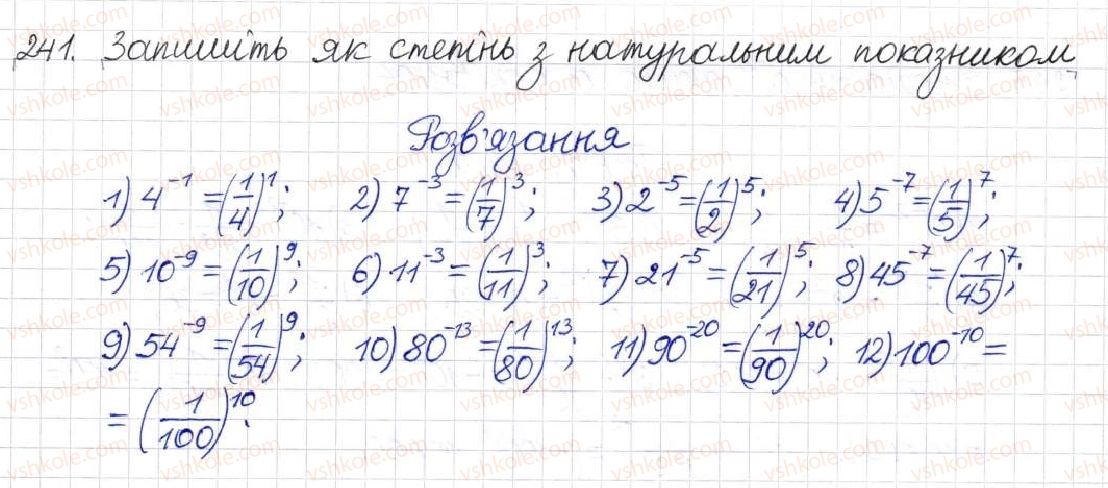 241. Запишіть як степінь з натуральним показником
Розв'язання
1) 4⁻¹ = (1/4)¹; 2) 7⁻³ = (1/7)³; 3) 2⁻⁵ = (1/2)⁵; 4) 5⁻⁷ = (1/5)⁷;
5) 10⁻⁹ = (1/10)⁹; 6) 11⁻³ = (1/11)³; 7) 21⁻⁵ = (1/21)⁵; 8) 45⁻⁷ = (1/45)⁷;
9) 54⁻⁹ = (1/54)⁹; 10) 80⁻¹³ = (1/80)¹³; 11) 90⁻²⁰ = (1/90)²⁰; 12) 100⁻¹⁰ =
= (1/100)¹⁰.